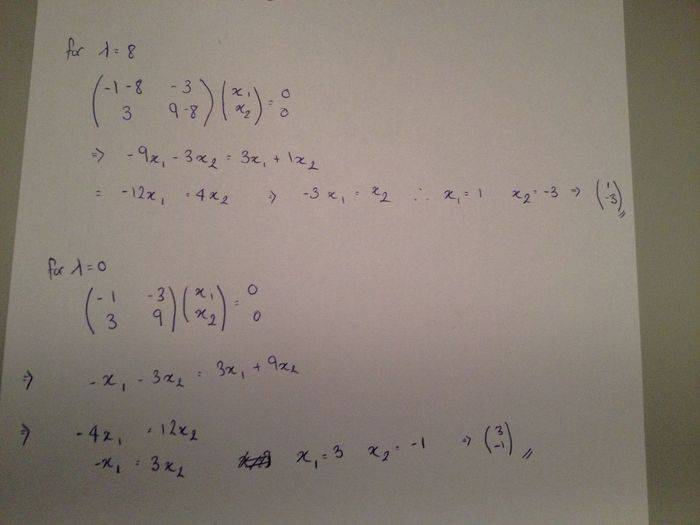 for λ = 8
(-1-8 -3
3 9-8) (x₁
x₂) = 0
0
⇒ -9x₁ - 3x₂ = 3x₁ + 1x₂
= -12x₁ = 4x₂ ⇒ -3x₁ = x₂ ∴ x₁ = 1 x₂ = -3 ⇒ (1
-3)
for λ = 0
(-1 -3
3 9) (x₁
x₂) = 0
0
⇒ -x₁ - 3x₂ = 3x₁ + 9x₂
⇒ -4x₁ = 12x₂
-x₁ = 3x₂ x₁ = 3 x₂ = -1 ⇒ (3
-1)